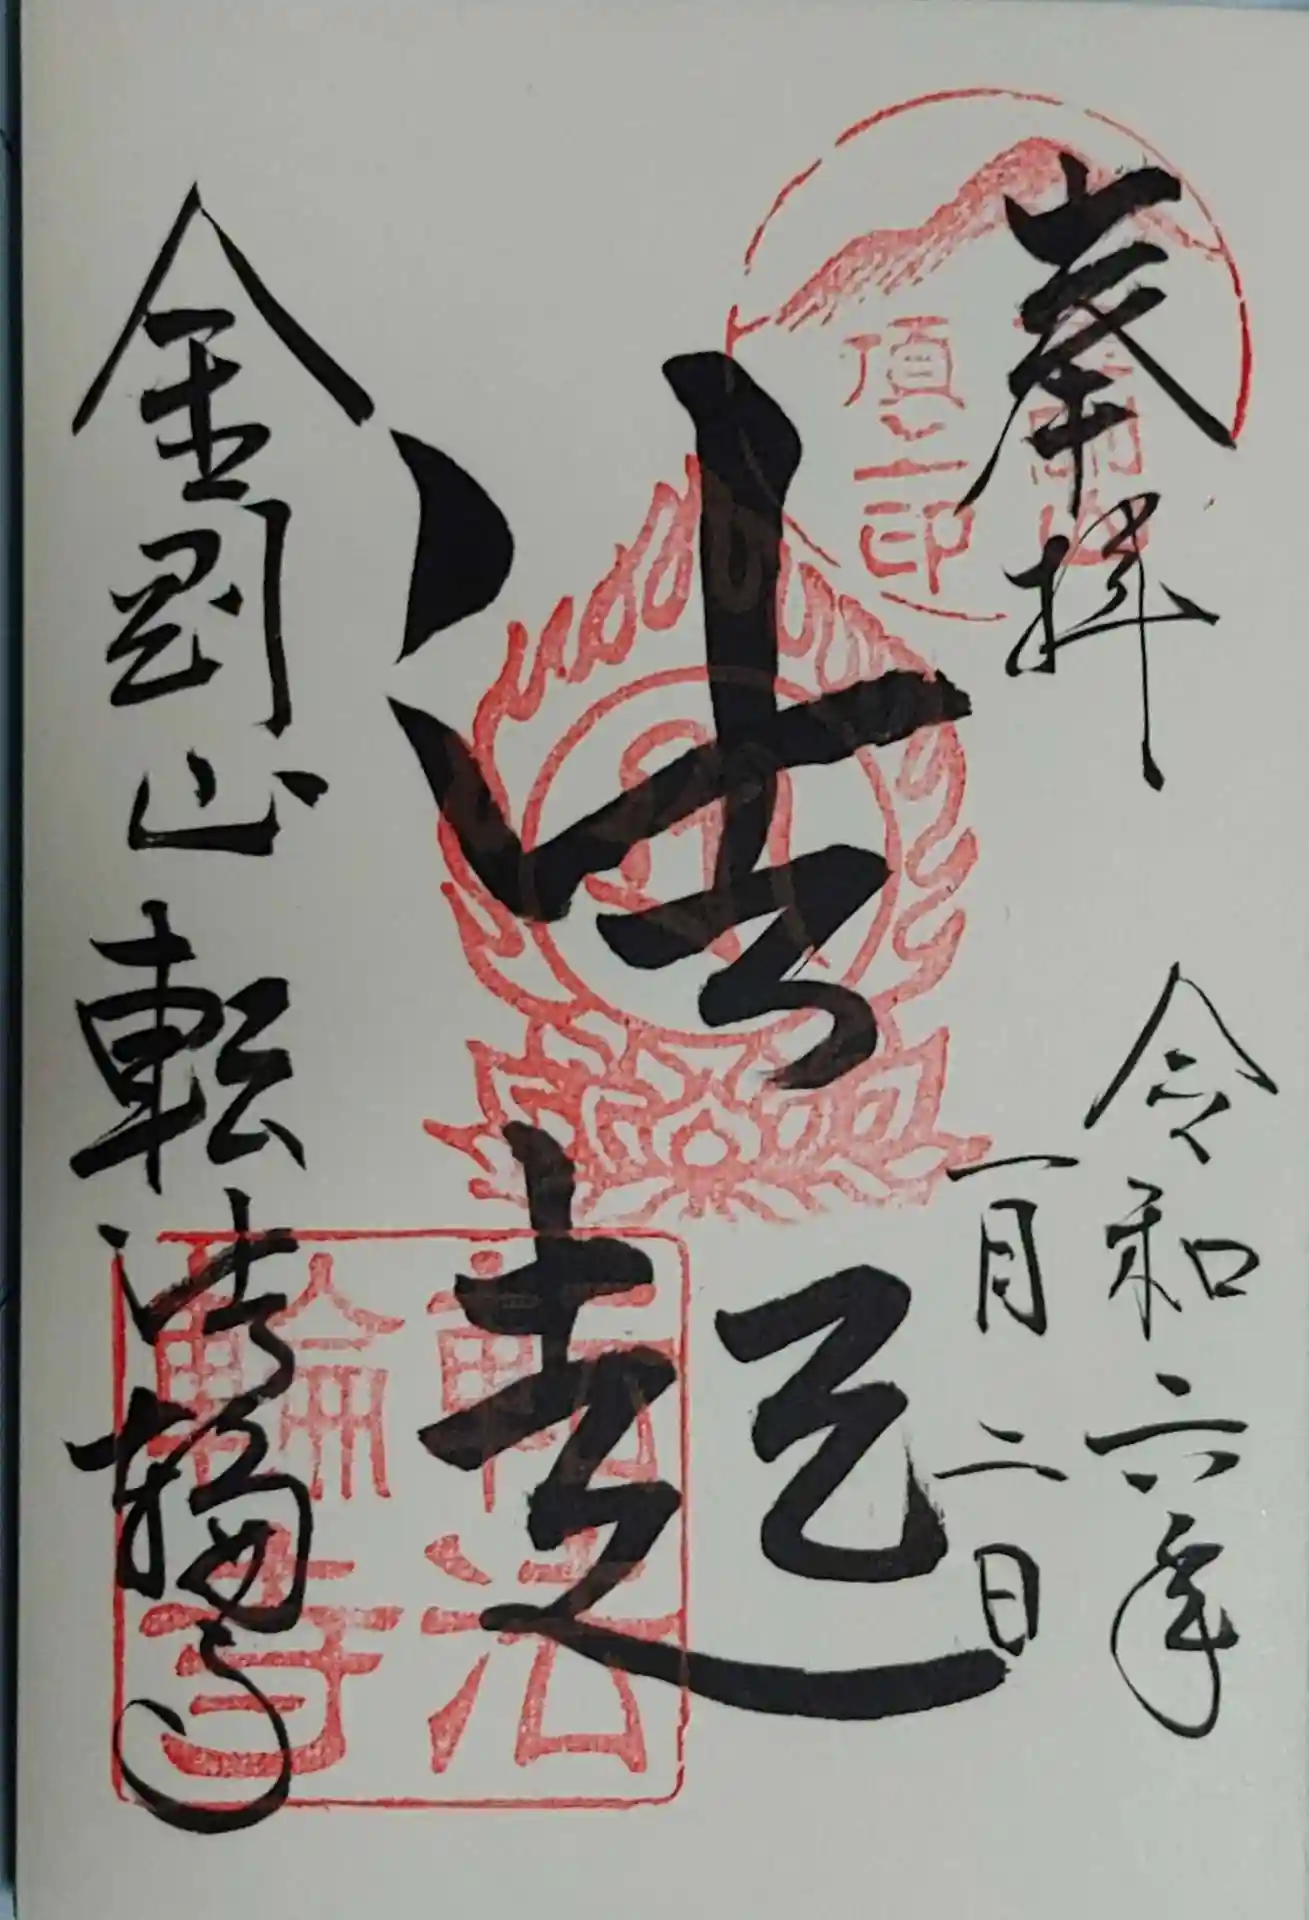 奉拝
令和六年
一月二日
法起
金剛山転法輪寺
金剛山
頂上印
転法
輪寺